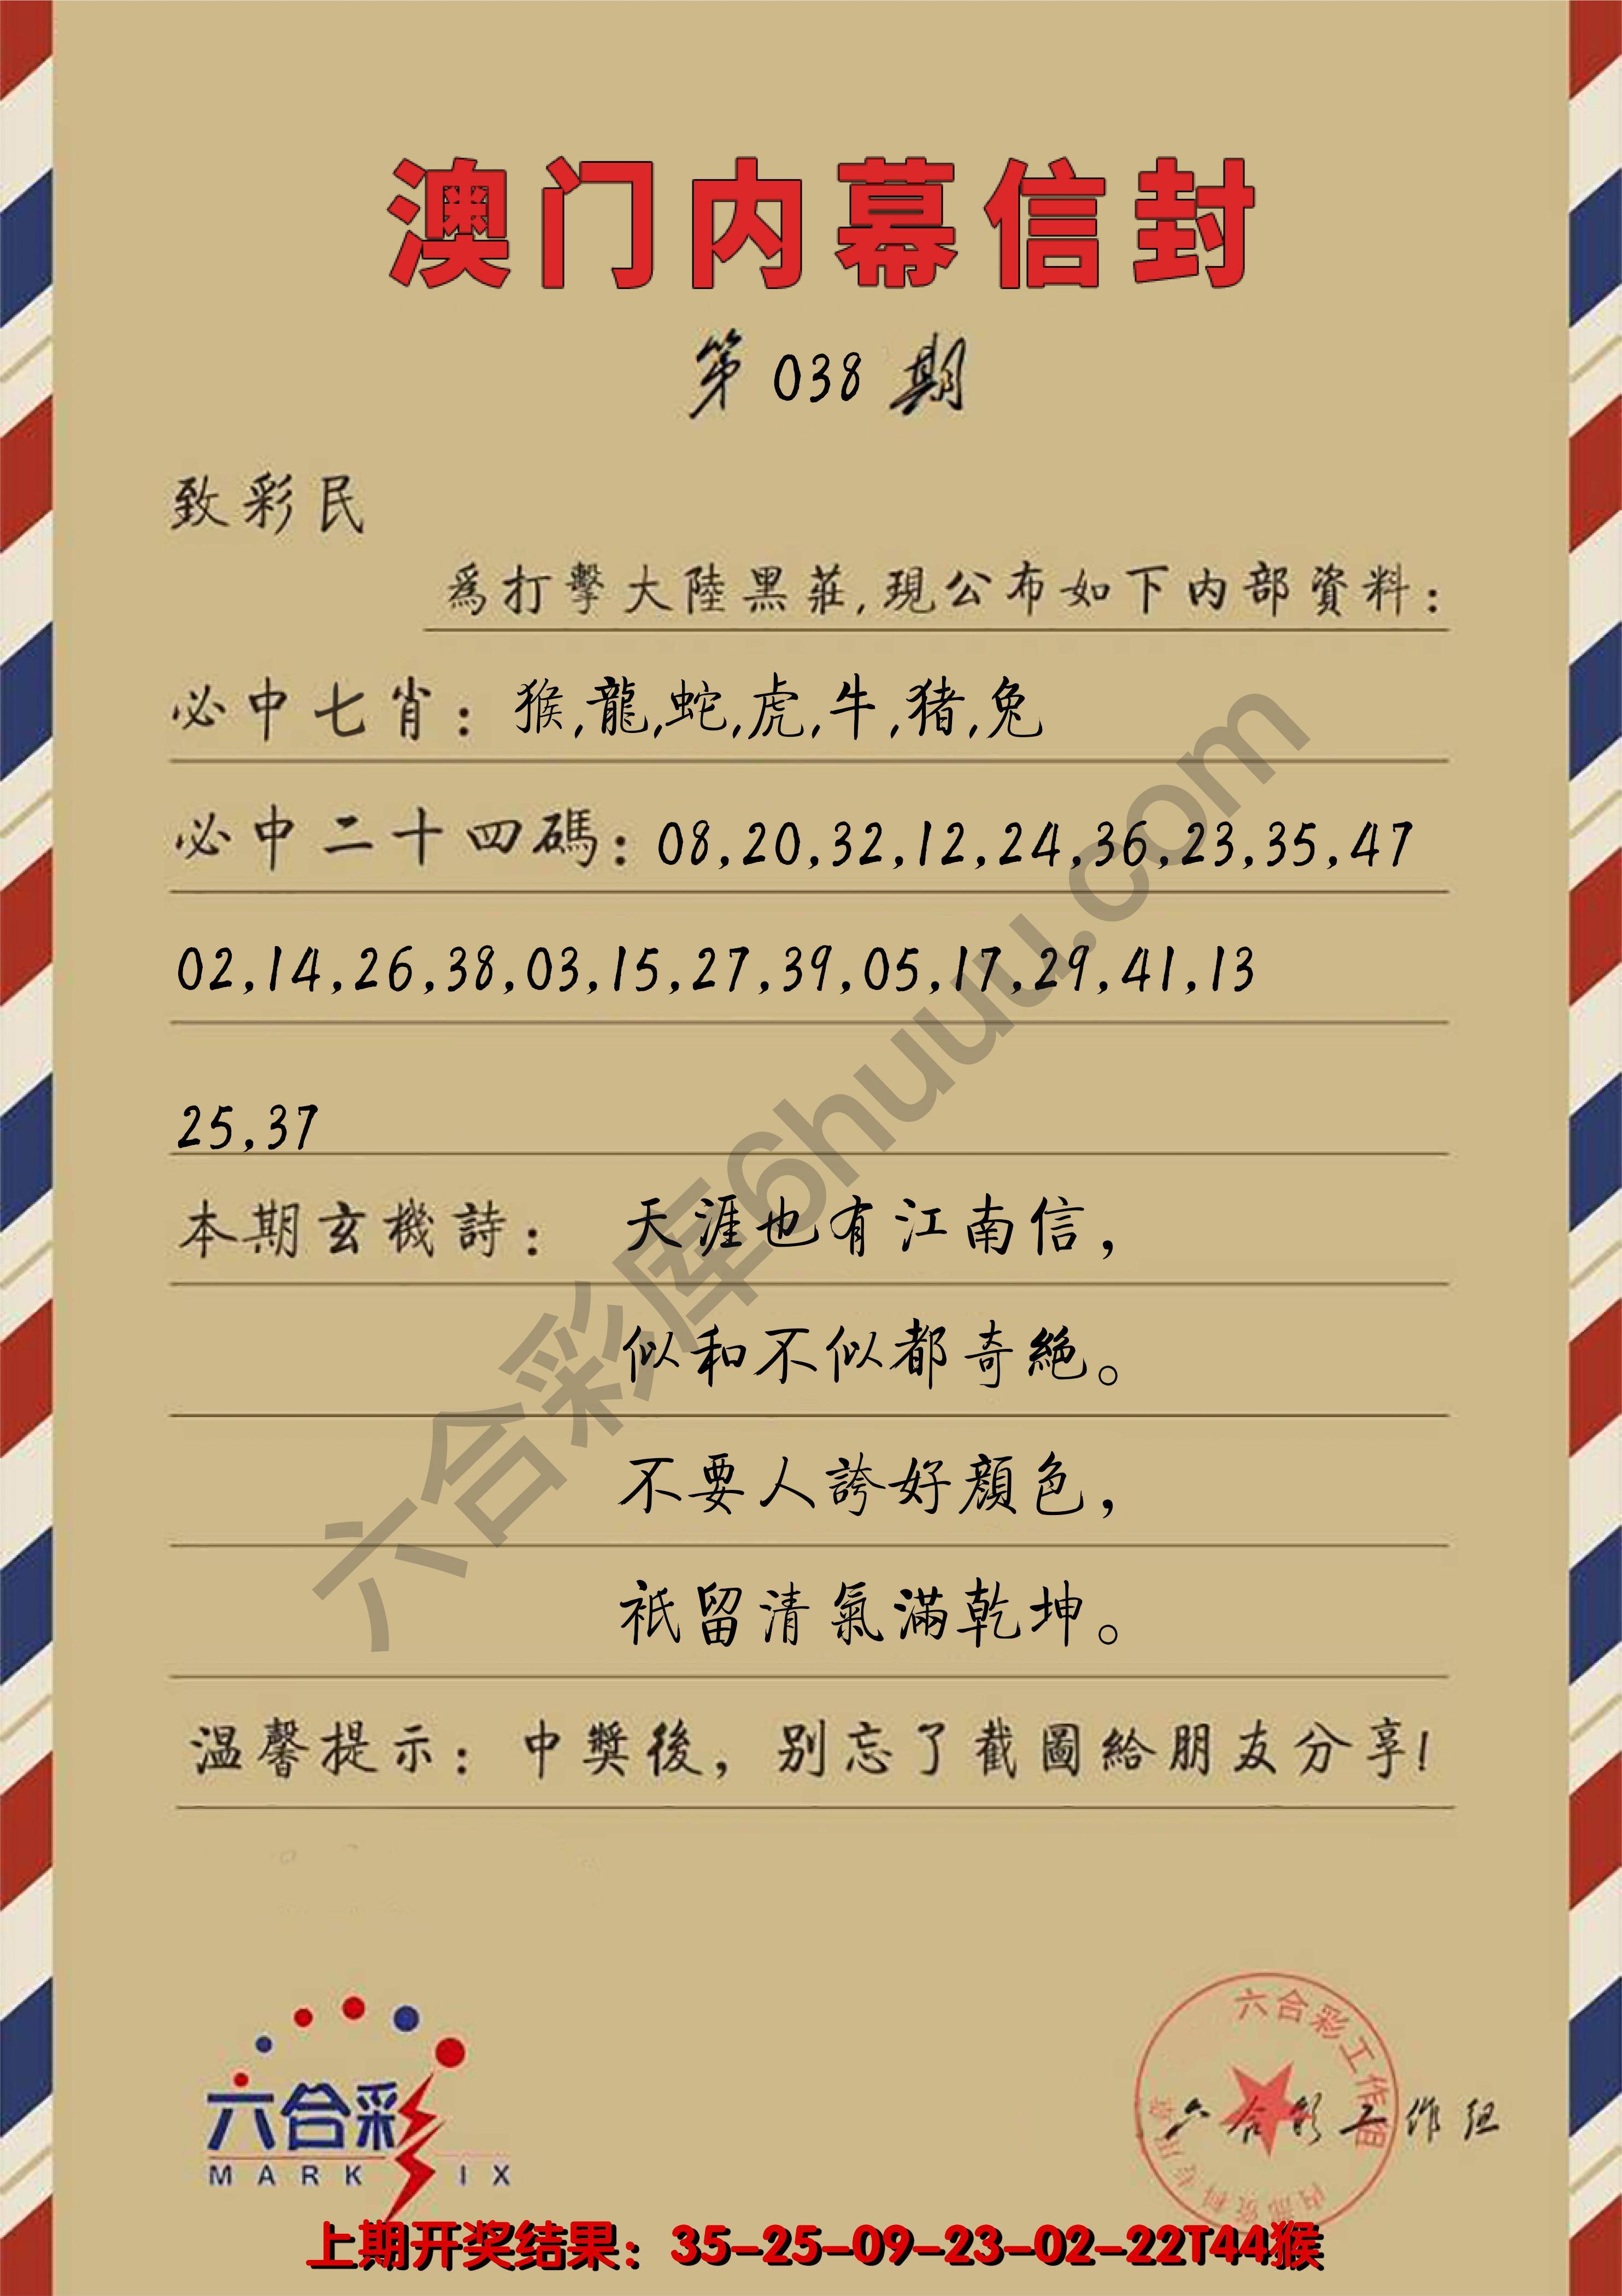 澳门内幕信封
第 038 期
致彩民
爲打擊大陸黑莊,現公布如下内部資料:
必中七肖: 猴,龍,蛇,虎,牛,猪,兔
必中二十四碼: 08,20,32,12,24,36,23,35,47
02,14,26,38,03,15,27,39,05,17,29,41,13
25,37
本期玄機詩: 天涯也有江南信,
似和不似都奇絕。
不要人誇好顏色,
祇留清氣滿乾坤。
温馨提示: 中獎後, 别忘了截圖給朋友分享!
六合彩库6huuu.com
六合彩
MARK IX
六合彩工作组
内部资料专用章
六合彩工作组
上期开奖结果: 35-25-09-23-02-22T44猴